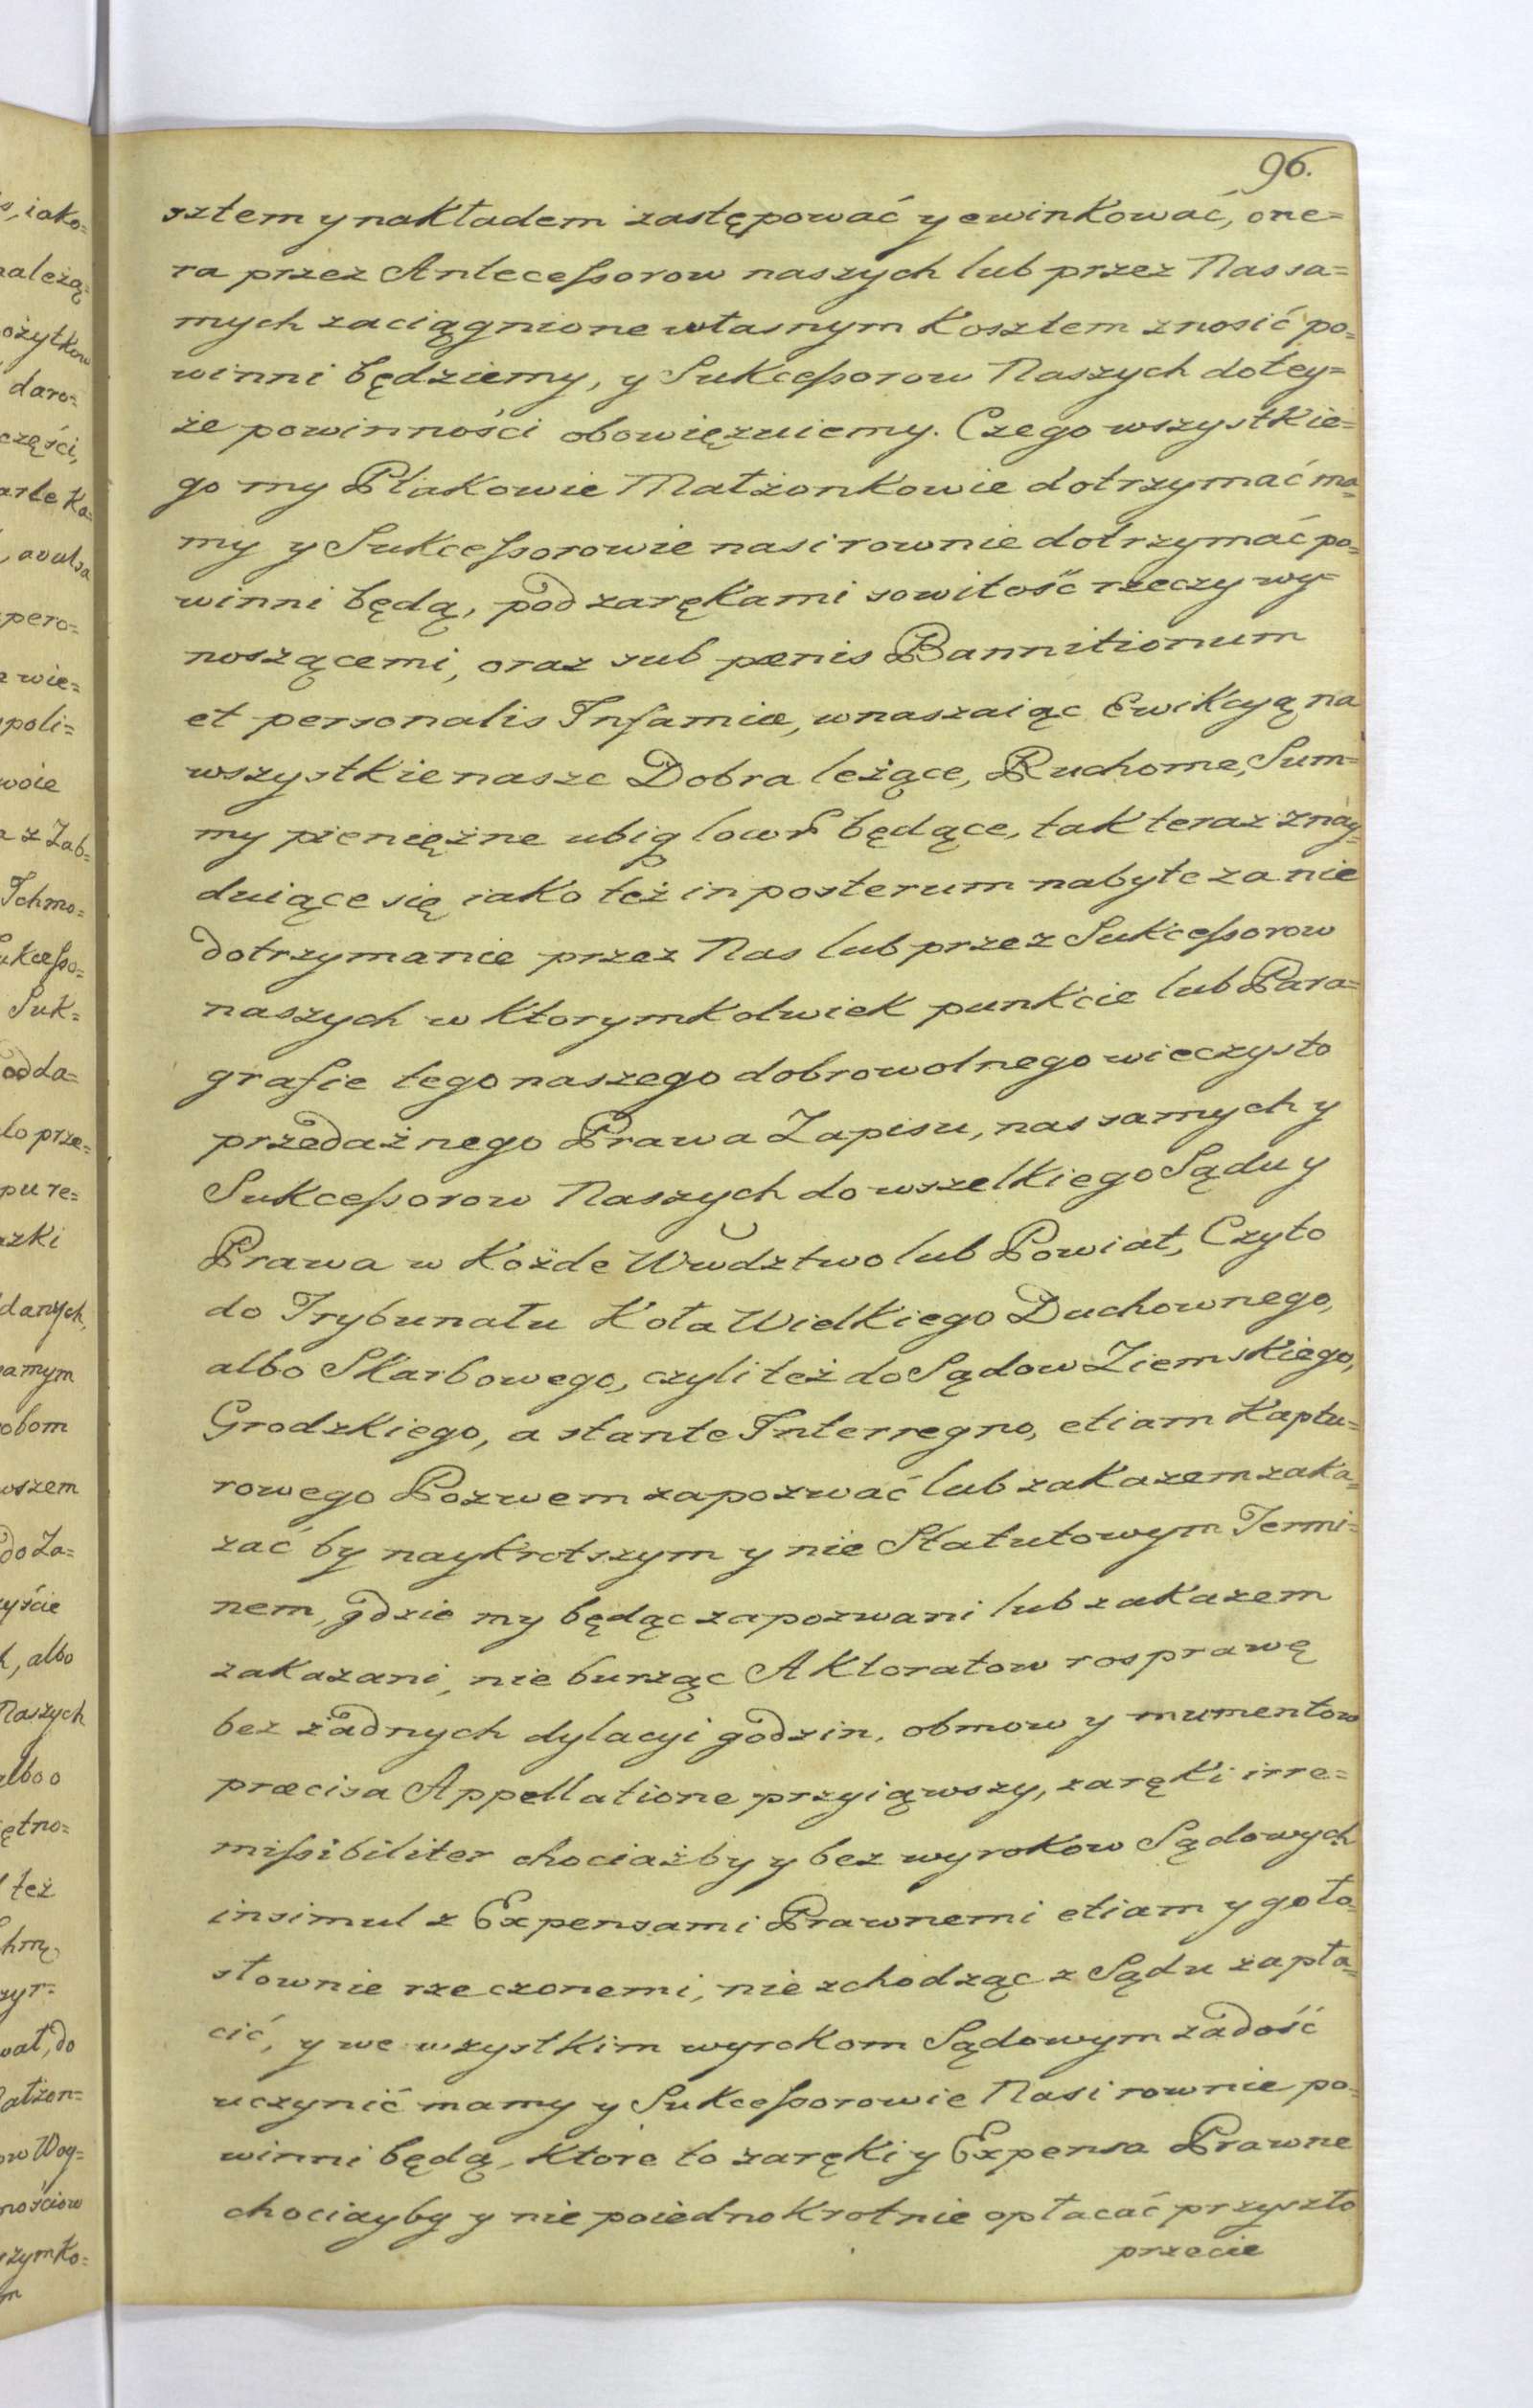 96.
sztem y nakładem zastępować y ewinkować, one=
ra przez Antecessorow naszych lub przez Nas sa=
mych zaciągnione własnym Kosztem znosić po=
winni będziemy, y Sukcessorow Naszych do tey=
że powinności obowięzuiemy. Czego wszystkie=
go my Ptakowie Małżonkowie dotrzymać ma=
my y Sukcessorowie nasi rownie dotrzymać po=
winni będą, pod zarękami sowitość rzeczy wy=
noszącemi, oraz sub pænis Bannitionum
et personalis Infamiæ, wnaszaiąc Ewikcyą na
wszystkie nasze Dobra leżące, Ruchome, Sum=
my pieniężne ubiq lowr będące, tak teraz znay=
duiące się iako też in posterum nabyte za nie
dotrzymanie przez Nas lub przez Sukcessorow
naszych w Ktorymkolwiek punkcie lub Para=
grafie tego naszego dobrowolnego wieczysto
przedażnego Prawa Zapisu, nas samych y
Sukcessorow Naszych do wszelkiego Sądu y
Prawa w Kożde Wwdztwo lub Powiat, Czy to
do Trybunału Koła Wielkiego Duchownego,
albo Skarbowego, czyli też do Sądow Ziemskiego,
Grodzkiego, a stante Interregno, etiam Kaptu=
rowego Pozwem zapozwać lub zakazem zaka=
zać by naykrotszym y nie Statutowym Termi=
nem, gdzie my będąc zapozwani lub zakazem
zakazani, nie burząc Aktoratow rosprawę
bez żadnych dylacyi godzin, obmow y mumentow
præcisa Appellatione przyiąwszy, zaręki irre=
missibiliter chociażby y bez wyrokow Sądowych
insimul z Expensami Prawnemi etiam y goło=
słownie rzeczonemi, nie zchodząc z Sądu zapła=
cić, y we wszystkim wyrokom Sądowym zadość
uczynić mamy y Sukcessorowie Nasi rownie po=
winni będą, Ktore to zaręki y Expensa Prawne
chociayby y nie poiednokrotnie opłacać przyszło
przecie